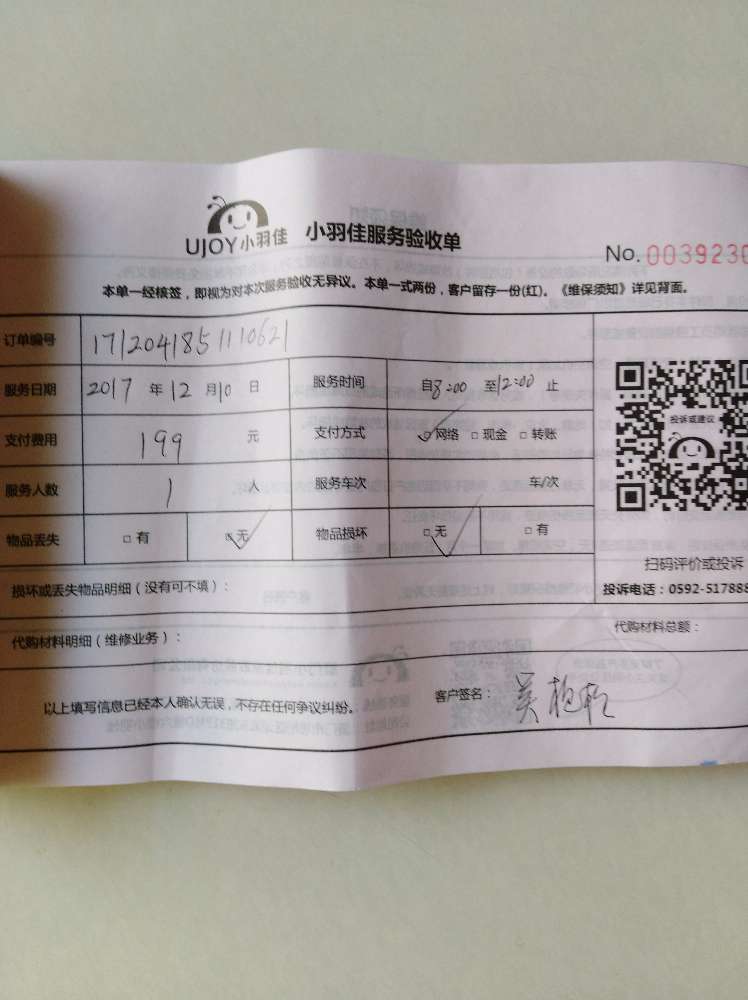 UJOY小羽佳 小羽佳服务验收单
No. 0039230
本单一经核签，即视为对本次服务验收无异议。本单一式两份，客户留存一份(红)。《维保须知》详见背面。
订单编号 1712041851110621
服务日期 2017 年 12 月 10 日 服务时间 自8:00 至12:00 止
支付费用 199 元 支付方式 ☑网络 □现金 □转账
服务人数 1 人 服务车次 车/次
物品丢失 □有 ☑无 物品损坏 ☑无 □有
投诉或建议
扫码评价或投诉
投诉电话：0592-517888
损坏或丢失物品明细（没有可不填）：
代购材料明细（维修业务）： 代购材料总额：
以上填写信息已经本人确认无误，不存在任何争议纠纷。 客户签名：吴